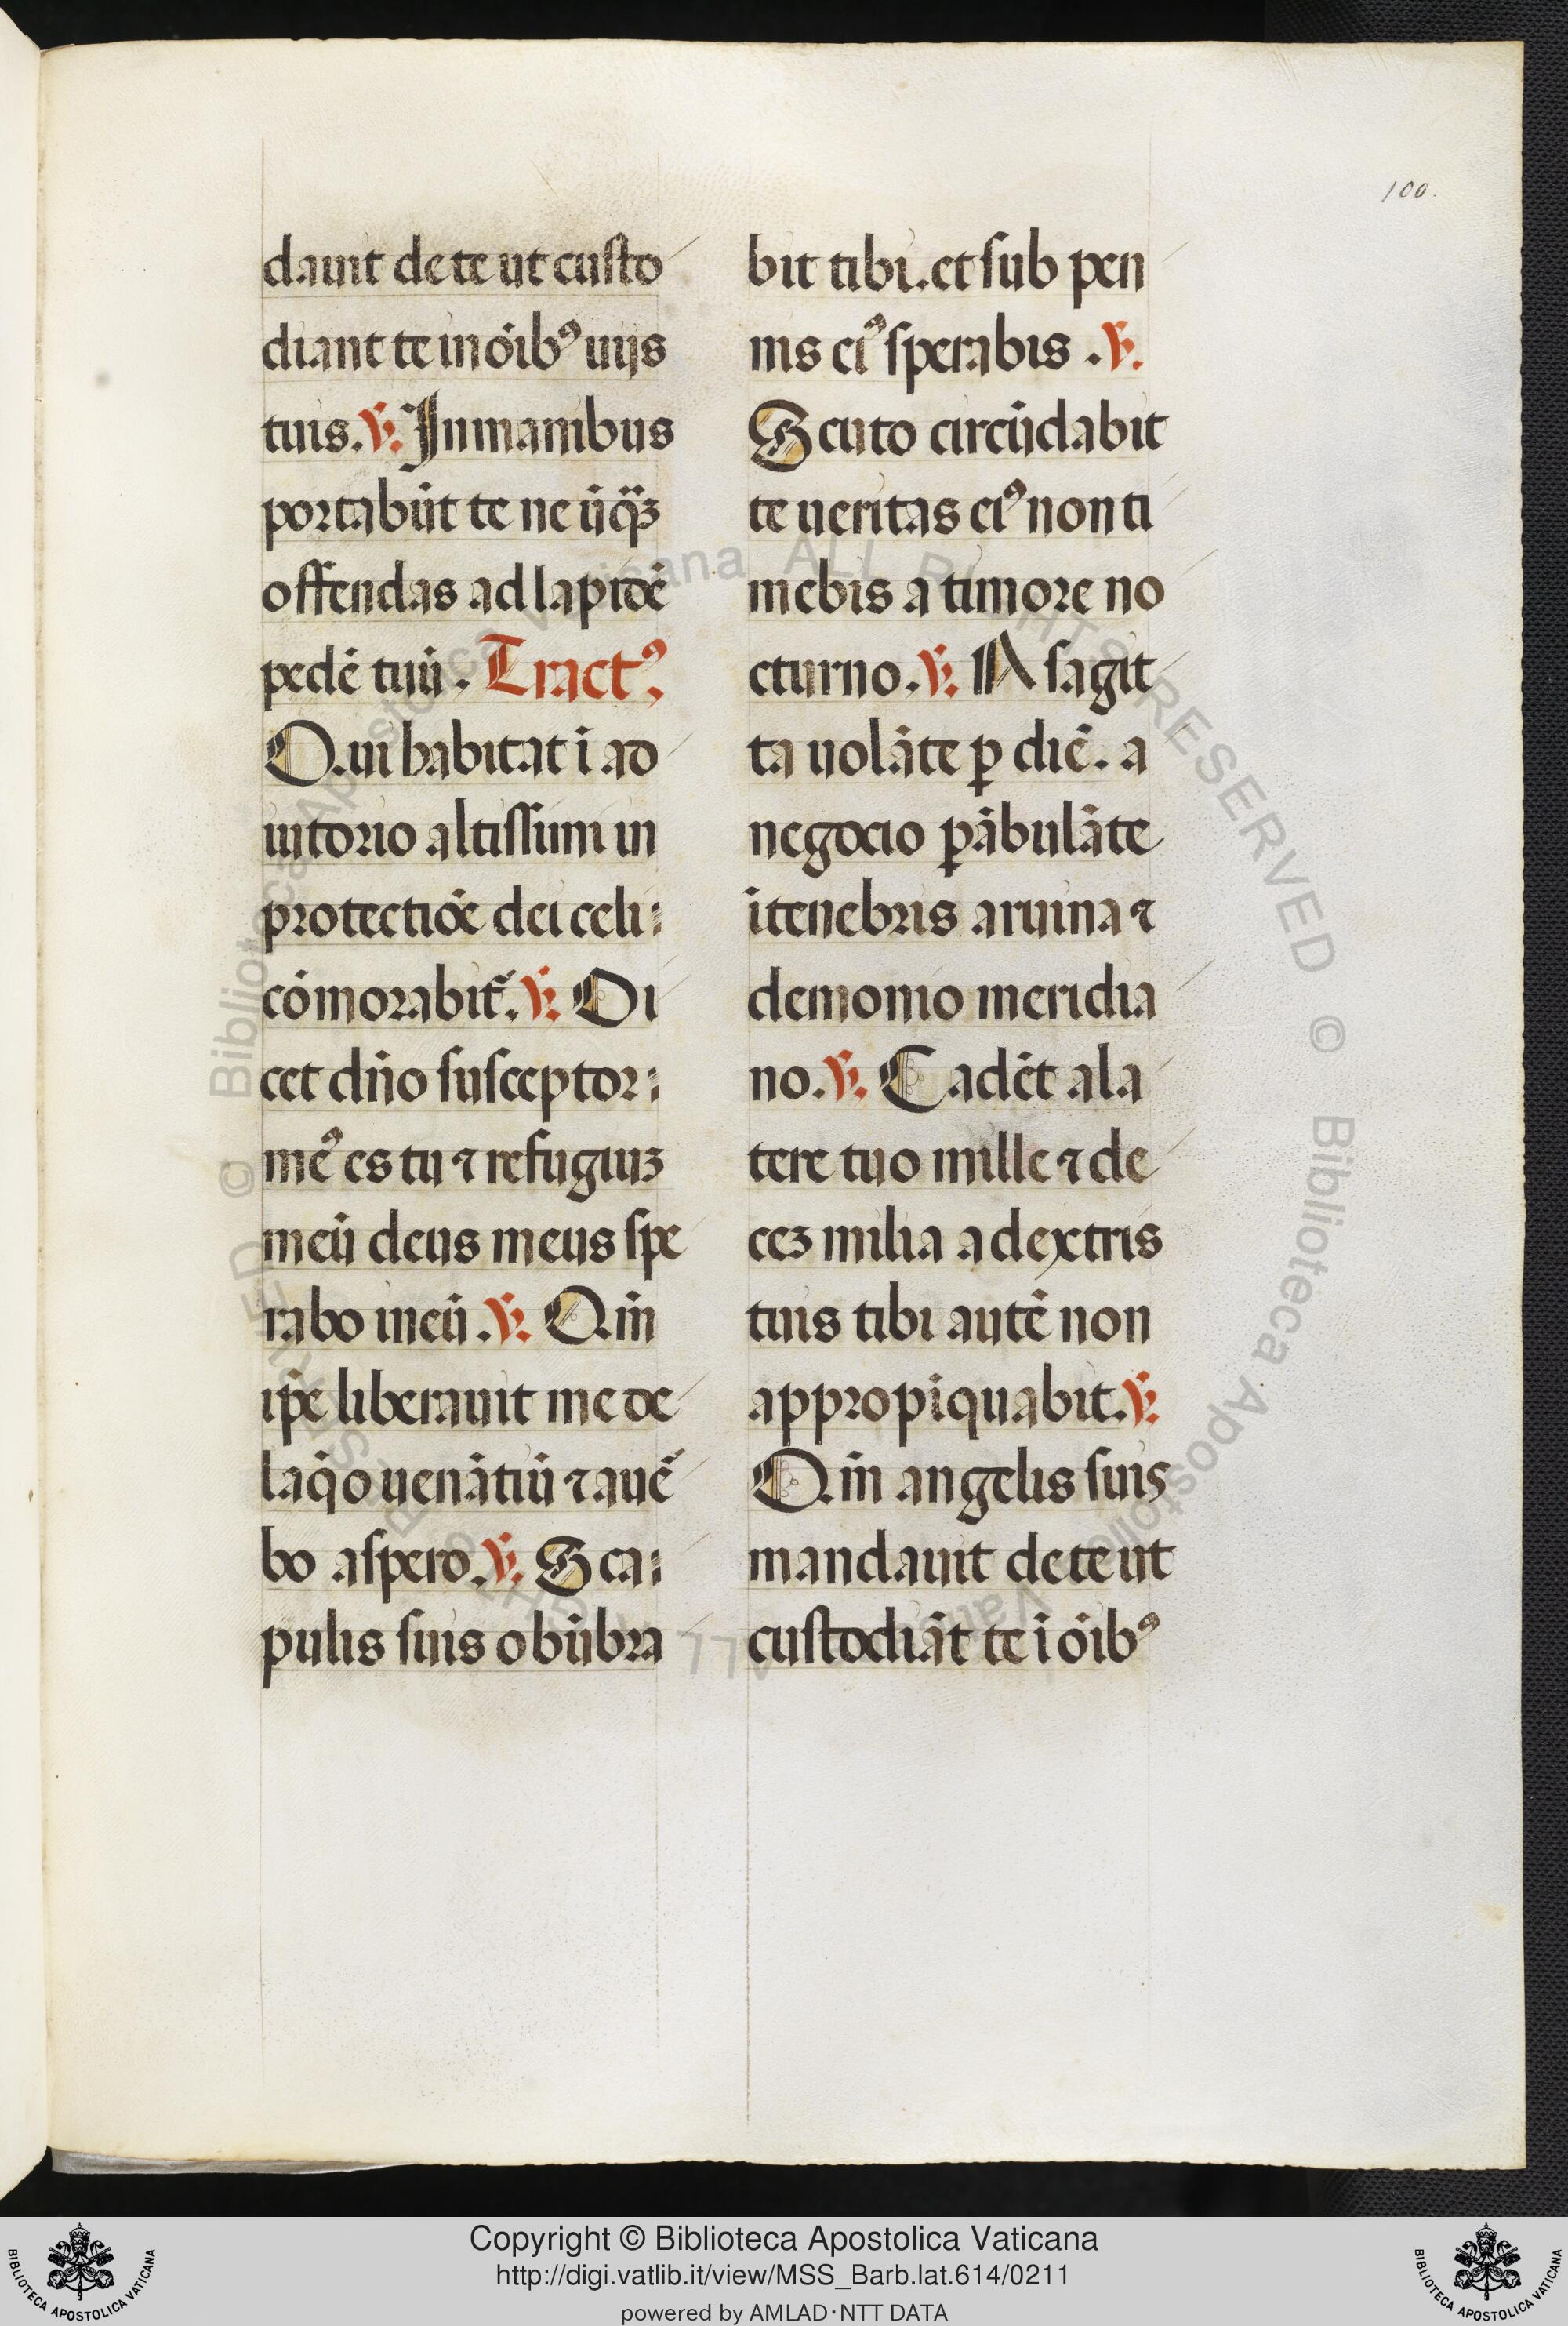 100.
dauit de te ut custo
diant te in oı̄ib⁹ uijs
tuis. ℣. In manibus
portabūt te ne ūq̄ꝫ
offendas ad lapidē
pedē tuū. Tract⁹
Qui habitat ī ad
iutorio altissimi in
protectiōe dei celi
cōmorabit̄. ℣. Di
cet dn̄o susceptor
me⁹ es tu ⁊ refugiuꝫ
meū deus meus spe
rabo in eū. ℣. Qm̄
ip̄e liberauit me de
laq̄o uenātiū ⁊ a uē
bo aspero. ℣. Sca
pulis suis obūbra
bit tibi. et sub pen
nis ei⁹ sperabis. ℣.
Scuto circūdabit
te ueritas ei⁹ non ti
mebis a timore no
cturno. ℣. A sagit
ta uolāte ꝑ diē. a
negocio ꝑābulāte
ī tenebris a ruina ⁊
demonio meridia
no. ℣. Cadēt a la
tere tuo mille ⁊ de
ceꝫ milia a dextris
tuis tibi autē non
appropīquabit. ℣.
Qm̄ angelis suis
mandauit de te ut
custodiāt te ī oı̄ib⁹
Copyright © Biblioteca Apostolica Vaticana
http://digi.vatlib.it/view/MSS_Barb.lat.614/0211
powered by AMLAD·NTT DATA
BIBLIOTECA APOSTOLICA VATICANA
BIBLIOTECA APOSTOLICA VATICANA